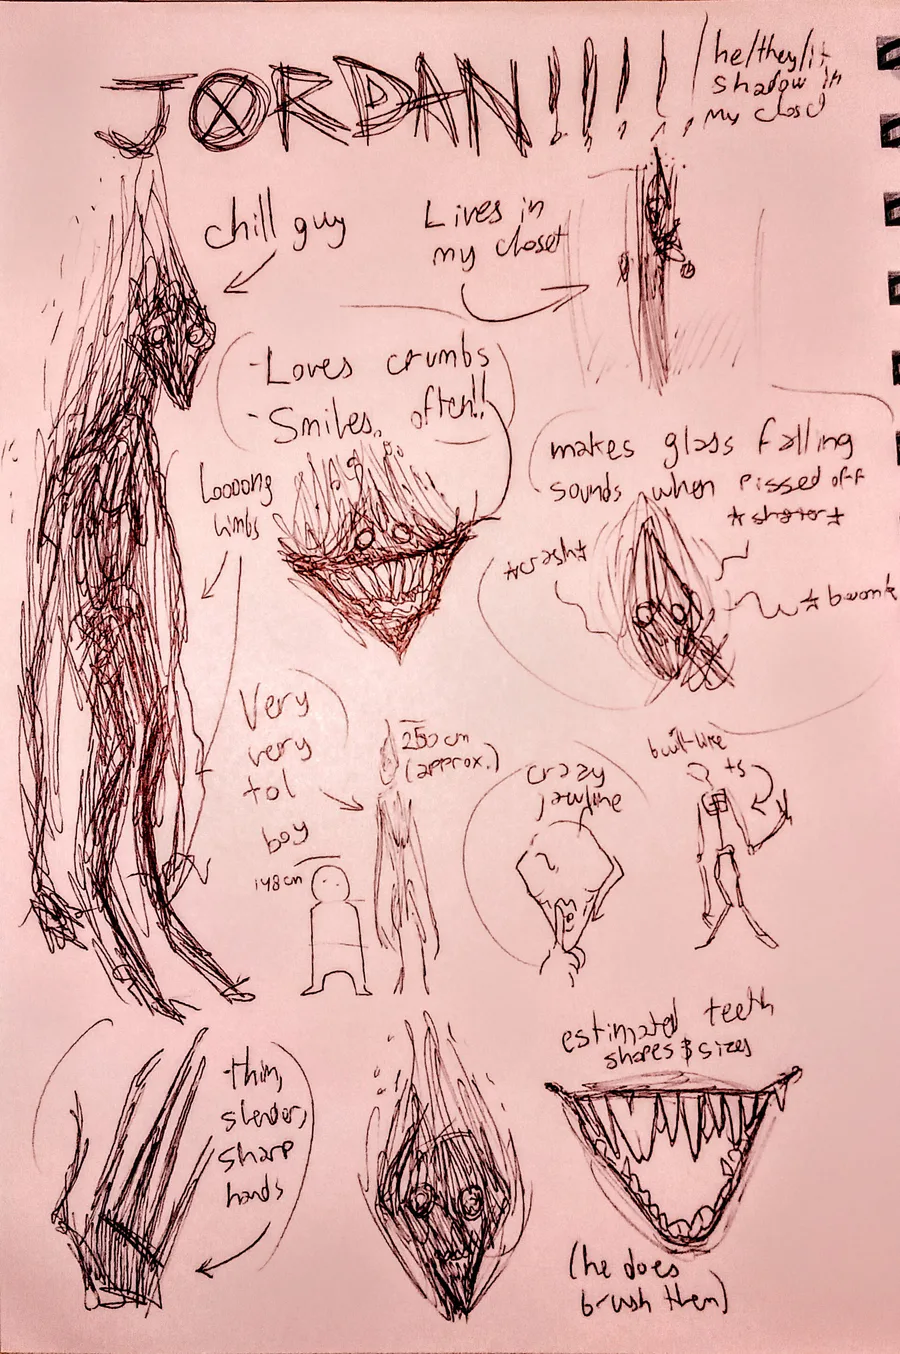 JORDAN!!!!!
he/they/it
shadow in
my closet
chill guy
Lives in
my closet
-Loves crumbs
-Smiles often!!
Loooong
limbs
makes glass falling
sounds when pissed off
*crash*
Very
very
tol
boy
250cm
(approx.)
148cm
crazy
jawline
built like
ts
-thin,
slender,
sharp
hands
estimated teeth
shapes & sizes
(he does
brush them)